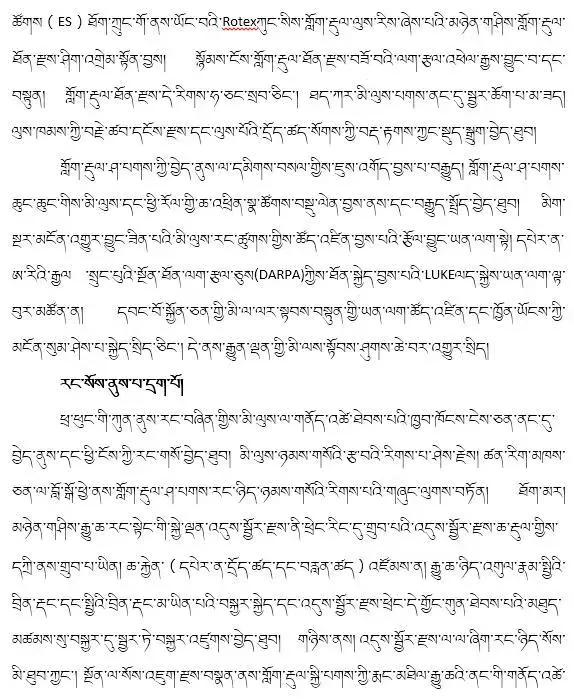 ཚོགས（ES）ཐོག་ཀྲུང་གོ་ནས་ཡོང་བའི་Rotexཀུང་སིས་གློག་རྡུལ་ལུས་རིས་ཞེས་པའི་མཉེན་གཤིས་གློག་རྡུལ་
ཐོན་རྫས་ཤིག་འགྲེམ་སྟོན་བྱས། སྙོམས་ངོས་གློག་རྡུལ་ཐོན་རྫས་བཟོ་བའི་ལག་རྩལ་འཕེལ་རྒྱས་བྱུང་བ་དང་
བསྟུན། གློག་རྡུལ་ཐོན་རྫས་དེ་རིགས་ཧ་ཅང་སྲབ་ཅིང་། ཐད་ཀར་མི་ལུས་པགས་ནང་དུ་སྦྱར་ཆོག་པ་མ་ཟད།
ལུས་ཁམས་ཀྱི་བརྗེ་ཚབ་དངོས་རྫས་དང་ལུས་པོའི་དྲོད་ཚད་སོགས་ཀྱི་བརྡ་རྟགས་ཀྱང་སྡུད་སྒྲུག་བྱེད་ཐུབ།
གློག་རྡུལ་ཤ་པགས་ཀྱི་བྱེད་ནུས་ལ་དམིགས་བསལ་གྱིས་ཇུས་འགོད་བྱས་པ་བརྒྱུད། གློག་རྡུལ་ཤ་པགས་
ཆུང་ཆུང་གིས་མི་ལུས་དང་ཕྱི་རོལ་གྱི་ཆ་འཕྲིན་སྣ་ཚོགས་བསྡུ་ལེན་བྱས་ནས་དང་བརྒྱུད་སྤྲོད་བྱེད་ཐུབ། མིག་
སྔར་མངོན་འགྱུར་བྱུང་ཟིན་པའི་མི་ལུས་རང་ཚུགས་གྱིས་ཚོད་འཛིན་བྱས་པའི་རྩོལ་བྱུང་ཡན་ལག་སྟེ། དཔེར་ན་
ཨ་རིའི་རྒྱལ སྲུང་པུའི་སྔོན་ཐོན་ལག་རྩལ་ཅུས(DARPA)ཀྱིས་ཐོན་སྐྱེད་བྱས་པའི་LUKEལད་སྐྱེས་ཡན་ལག་ལྟ་
བུར་མཚོན་ན། དབང་པོ་སྐྱོན་ཅན་གྱི་མི་ལ་ལར་སྟབས་བསྟུན་གྱི་ཡན་ལག་ཚོད་འཛིན་དང་ཁྱོན་ཡོངས་ཀྱི་
མངོན་སུམ་ཤེས་པ་སྐྱེད་སྲིད་ཅིང་། དེ་ནས་རྒྱུན་ལྡན་གྱི་མི་ལས་སྟོབས་ཤུགས་ཆེ་བར་འགྱུར་སྲིད།
རང་སོས་ནུས་པ་དྲག་པོ།
ཕྲ་ཕུང་གི་ཀུན་ནུས་རང་བཞིན་གྱིས་མི་ལུས་ལ་གནོད་འཚེ་ཐེབས་པའི་ཁྱབ་ཁོངས་ངེས་ཅན་ནང་དུ་
བྱེད་ནུས་དང་ཕྱི་ངོས་ཀྱི་རང་གསོ་བྱེད་ཐུབ། མི་ལུས་ཉམས་གསོའི་རྩ་བའི་རིགས་པ་ཤེས་རྗེས། ཚན་རིག་མཁས་
ཅན་ལ་བློ་སྒོ་ཕྱེ་ནས་གློག་རྡུལ་ཤ་པགས་རང་ཉིད་ཉམས་གསོའི་རིགས་པའི་གཞུང་ལུགས་བཏོན། ཐོག་མར།
མཉེན་གཤིས་རྒྱུ་ཆ་རང་སྟེང་གི་སྐྱེ་ལྡན་འདུས་སྦྱོར་རྫས་ནི་ཕྲེང་རིང་དུ་གྲུབ་པའི་འདུས་སྦྱོར་རྫས་ཆ་རྡུལ་གྱིས་
དཀྲི་ནས་གྲུབ་པ་ཡིན། ཆ་རྐྱེན་（དཔེར་ན་དྲོད་ཚད་དང་བརླན་ཚད）འཛོམས་ན། རྒྱུ་ཆ་ཉིད་འགུལ་རྣམ་སྤྱིའི་
བྲིན་རྡང་དང་སྤྱིའི་བྲིན་རྡང་མ་ཡིན་པའི་བསྐྱར་སྐྱེད་དང་འདུས་སྦྱོར་རྫས་ཕྲེང་དེ་གྱོང་གུན་ཐེབས་པའི་མཐུད་
མཚམས་སུ་བསྐྱར་དུ་སྦྱར་ཏེ་བསྐྱར་འཛུགས་བྱེད་ཐུབ། གཉིས་ནས། འདུས་སྦྱོར་རྫས་ལ་ལ་ཞིག་རང་ཉིད་སོས་
མི་ཐུབ་ཀྱང་། སྔོན་ལ་སོས་འཇུག་རྫས་བསྣན་ནས་གློག་རྡུལ་སྐྱི་པགས་ཀྱི་རྨང་མཐིལ་རྒྱུ་ཆའི་ནང་གི་གནོད་འཚེ་